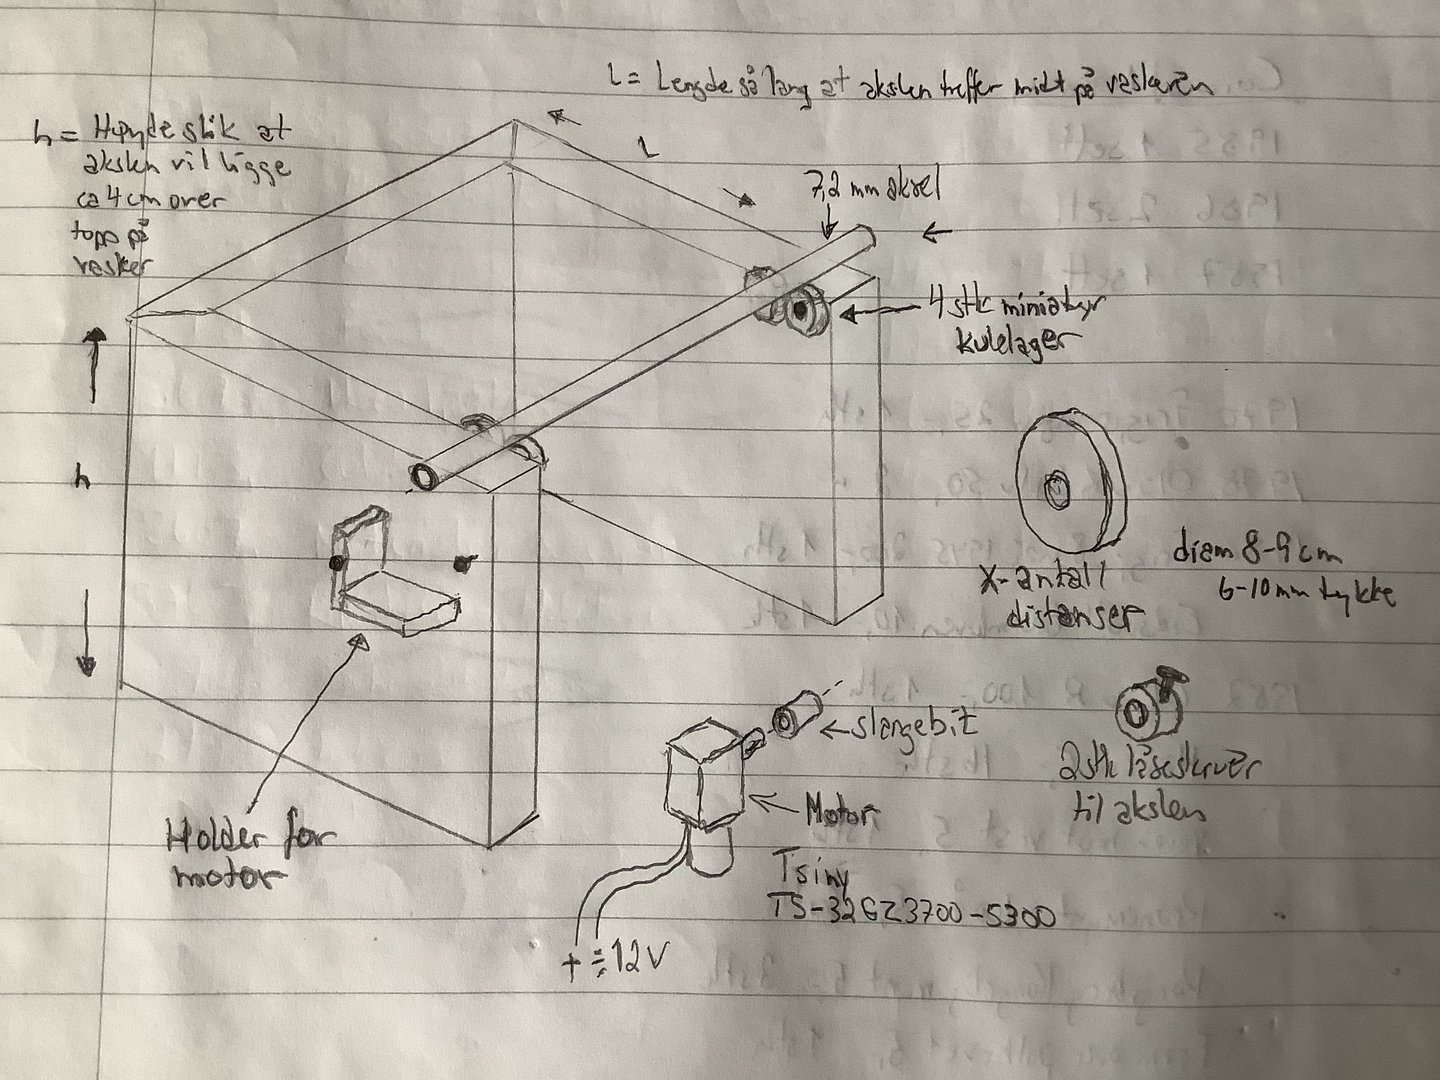 L = Lengde så lang at akslen treffer midt på vaskeren
h = Høyde slik at
akslen vil ligge
ca 4 cm over
topp på
vasker
L
7,2 mm aksel
4 stk miniatyr
kulelager
h
X-antall
distanser
diam 8-9 cm
6-10 mm tykke
slangebit
2 stk låseskruer
til akslen
Motor
Holder for
motor
Tsiny
TS-32GZ3700-5300
+ ÷ 12V